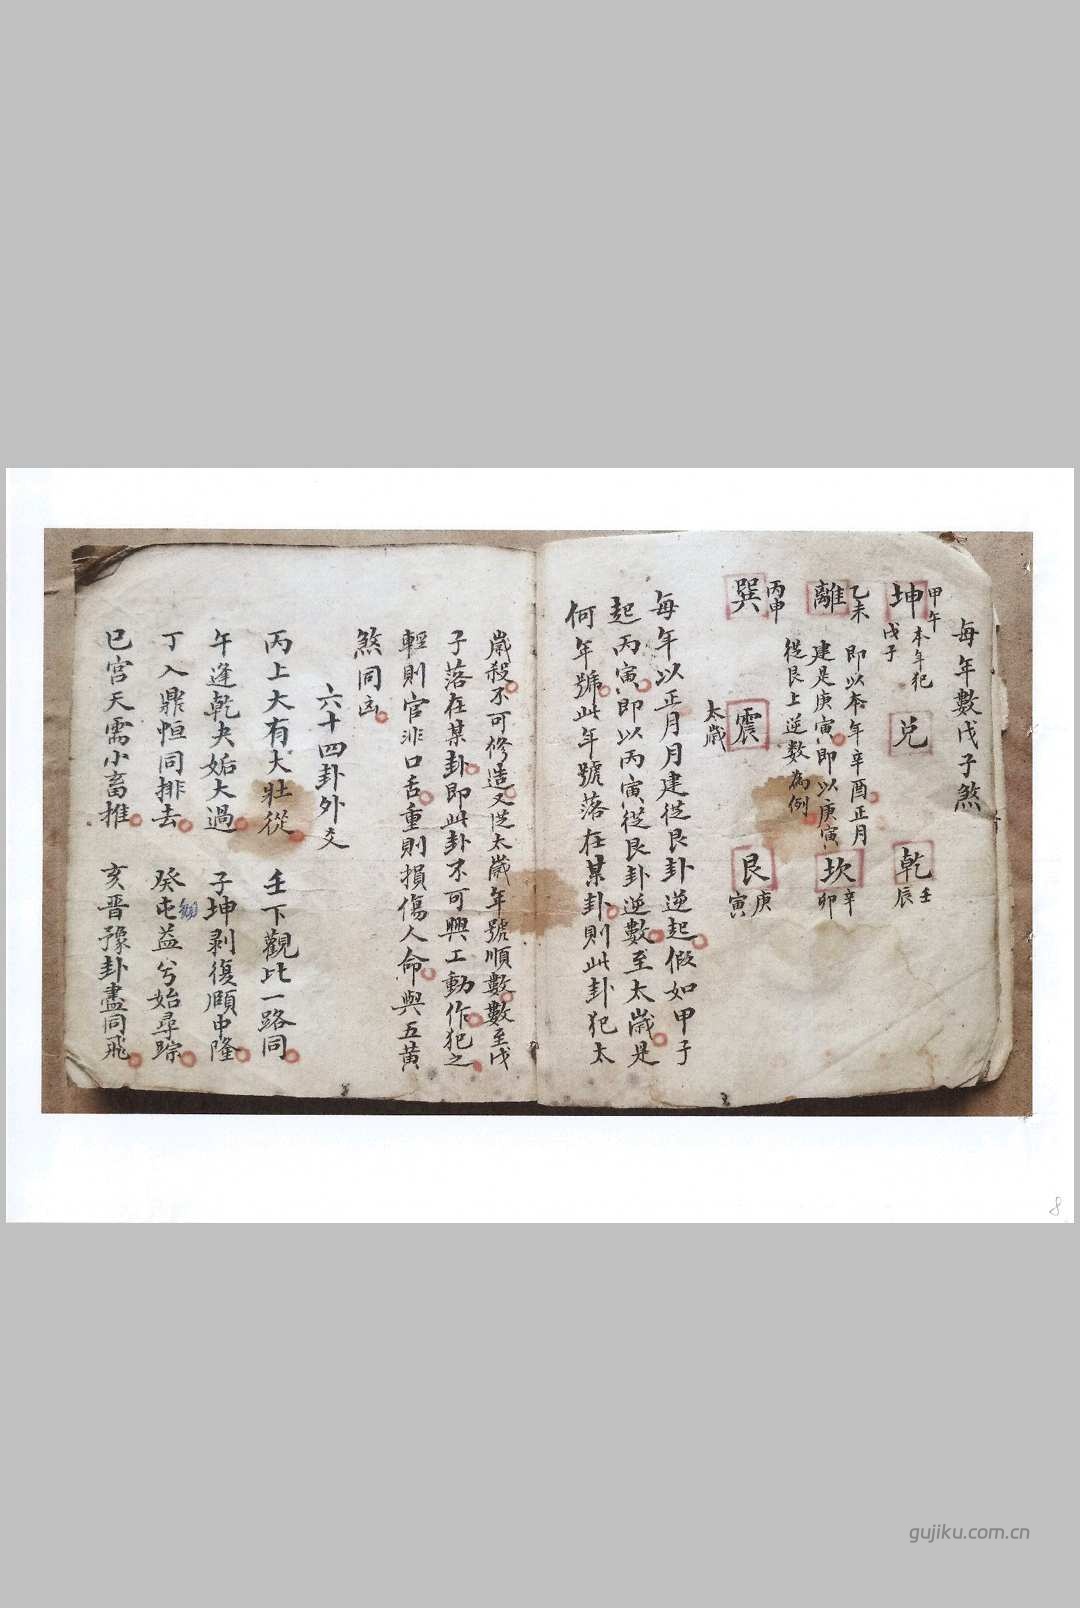 每年數戊子煞
甲午
坤
戊子
本年犯
兌
乾
壬
辰
乙未
離
即以本年辛酉正月
建是庚寅即以庚寅
從艮上逆數為例
坎
辛
卯
丙申
巽
震
太歲
艮
庚
寅
每年以正月月建從艮卦逆起假如甲子
起丙寅即以丙寅從艮卦逆數至太歲是
何年號此年號落在某卦則此卦犯太
歲殺不可修造又從太歲年號順數數至戊
子落在某卦即此卦不可興工動作犯之
輕則官非口舌重則損傷人命與五黃
煞同凶
六十四卦外交
丙上大有大壯從 壬下觀比一路同
午逢乾夬姤大過 子坤剥復頤中隆
丁入鼎恒同排去 癸屯益兮始尋踪
巳宮天需小畜推 亥晋豫卦盡同飛
8
gujiku.com.cn